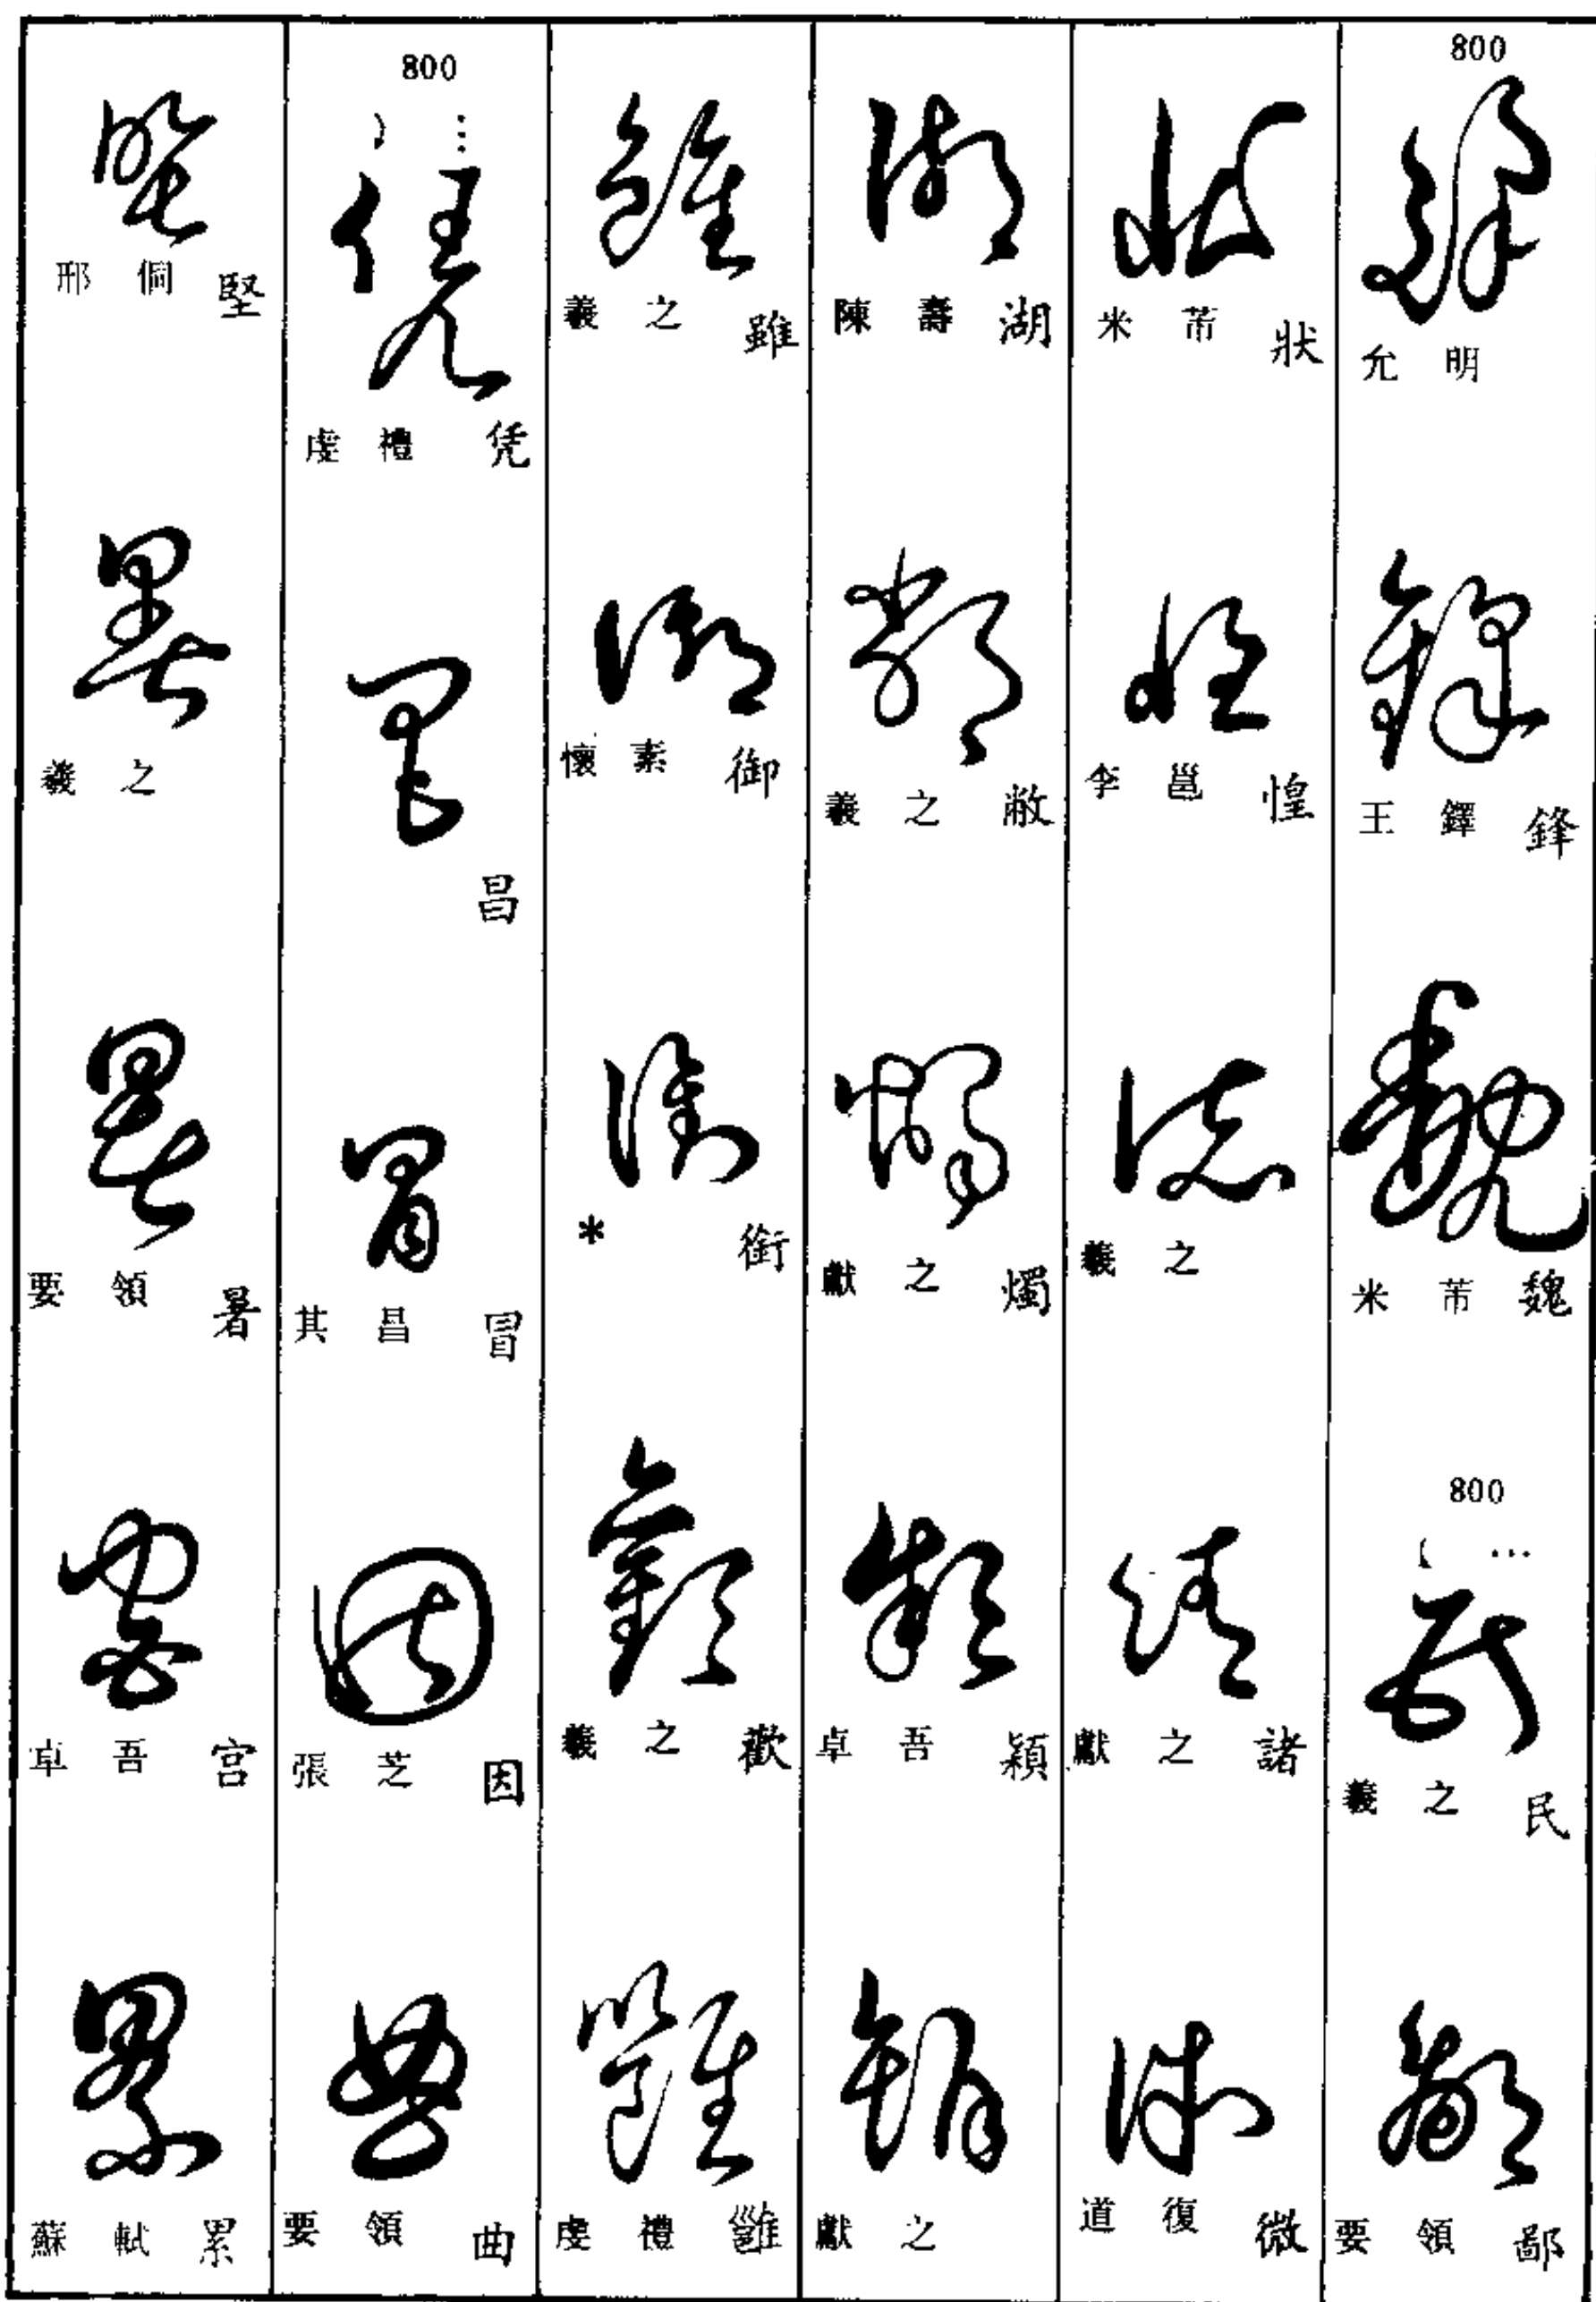 800
允明
王鐸 鋒
米芾 魏
800
羲之 民
要領 鄙
米芾 狀
李邕 惶
羲之
獻之 諸
道復 微
陳壽 湖
羲之 敝
獻之 燭
卓吾 穎
獻之
羲之 雖
懷素 御
* 銜
羲之 歡
虔禮 雝
800
虔禮 凭
昌
其昌 冒
張芝 因
要領 曲
邢侗 堅
羲之
要領 暑
卓吾 宫
蘇軾 累